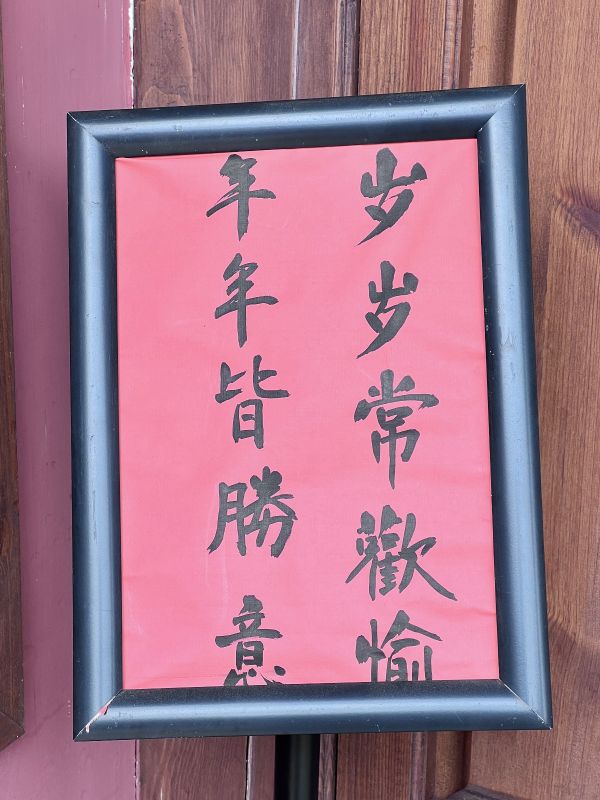 岁岁常歡愉
年年皆勝意